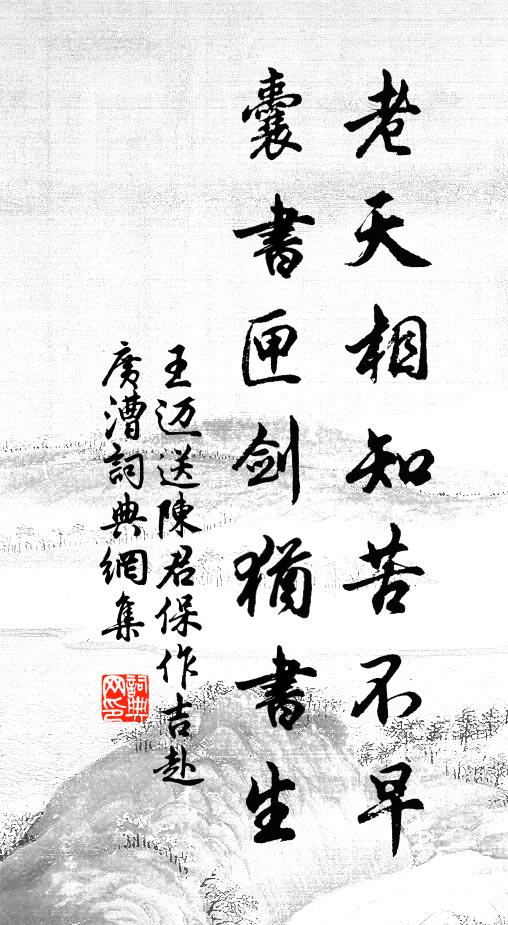 老天相知苦不早
囊書匣劍猶書生
王迈送陳君保作吉赴
廣漕詞典網集
詞典網印